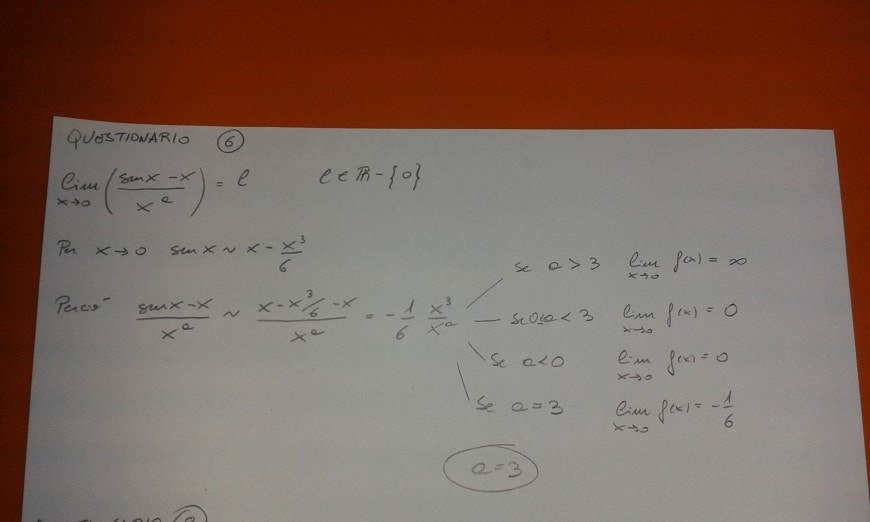 QUESTIONARIO 6
lim x→0 (sinx - x / x^a) = l    l ∈ ℝ - {0}
Per x→0 sinx ~ x - x³/6
Perciò sinx - x / x^a ~ x - x³/6 - x / x^a = - 1/6 x³/x^a
Se a > 3 lim x→0 f(x) = ∞
se 0≤a < 3 lim x→0 f(x) = 0
Se a < 0 lim x→0 f(x) = 0
Se a = 3 lim x→0 f(x) = - 1/6
a = 3